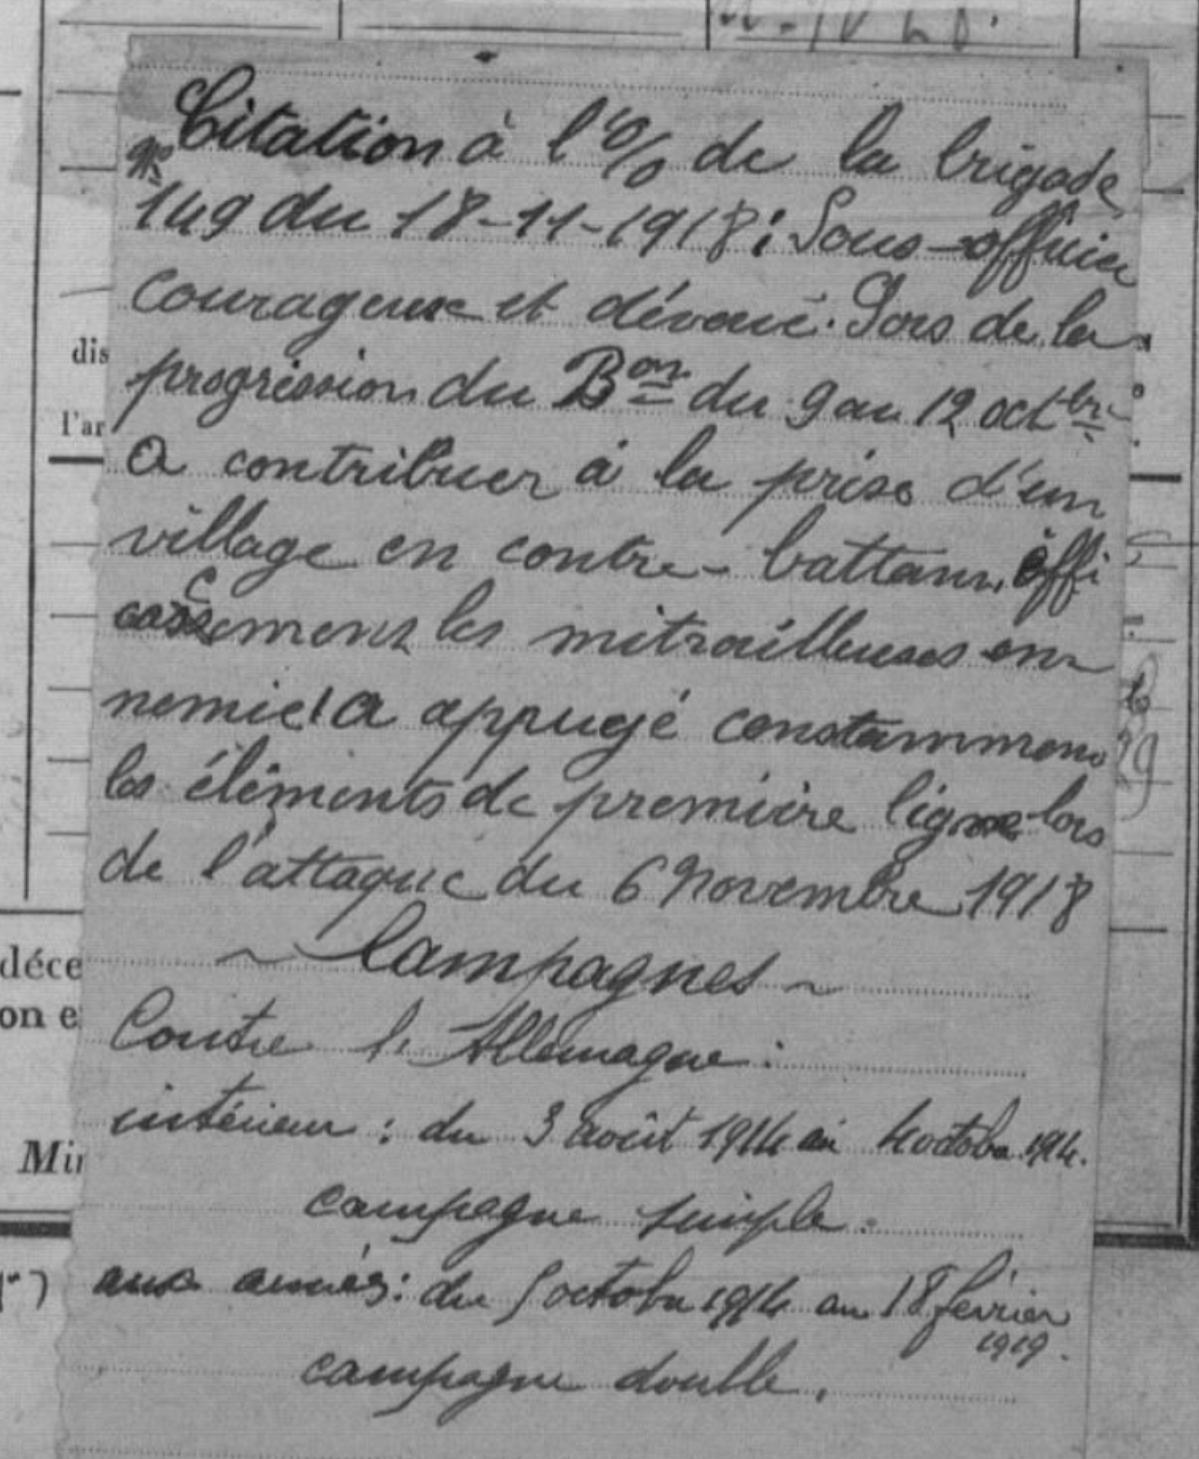 Citation à l'o/o de la brigade
No 149 du 18-11-1918 : Sous-officier
courageux et dévoué. Lors de la
progression du Bon du 9 au 12 octbre
a contribuer à la prise d'un
village en contre-battant effi
cacement les mitrailleuses en-
nemies a appuyé constamment
les éléments de première ligne lors
de l'attaque du 6 Novembre 1918
~ Campagnes ~
Contre l'Allemagne :
intérieur : du 3 août 1914 au 4 octobre 1914.
campagne simple.
aux armées : du 5 octobre 1914 au 18 février
1919.
campagne double.
dis
l'ar
déce
on e
Mi